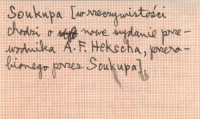 Soukupa [w rzeczywistości
chodzi o nowe wydanie prze-
wodnika A. F. Hekscha, przera-
bionego przez Soukupa].